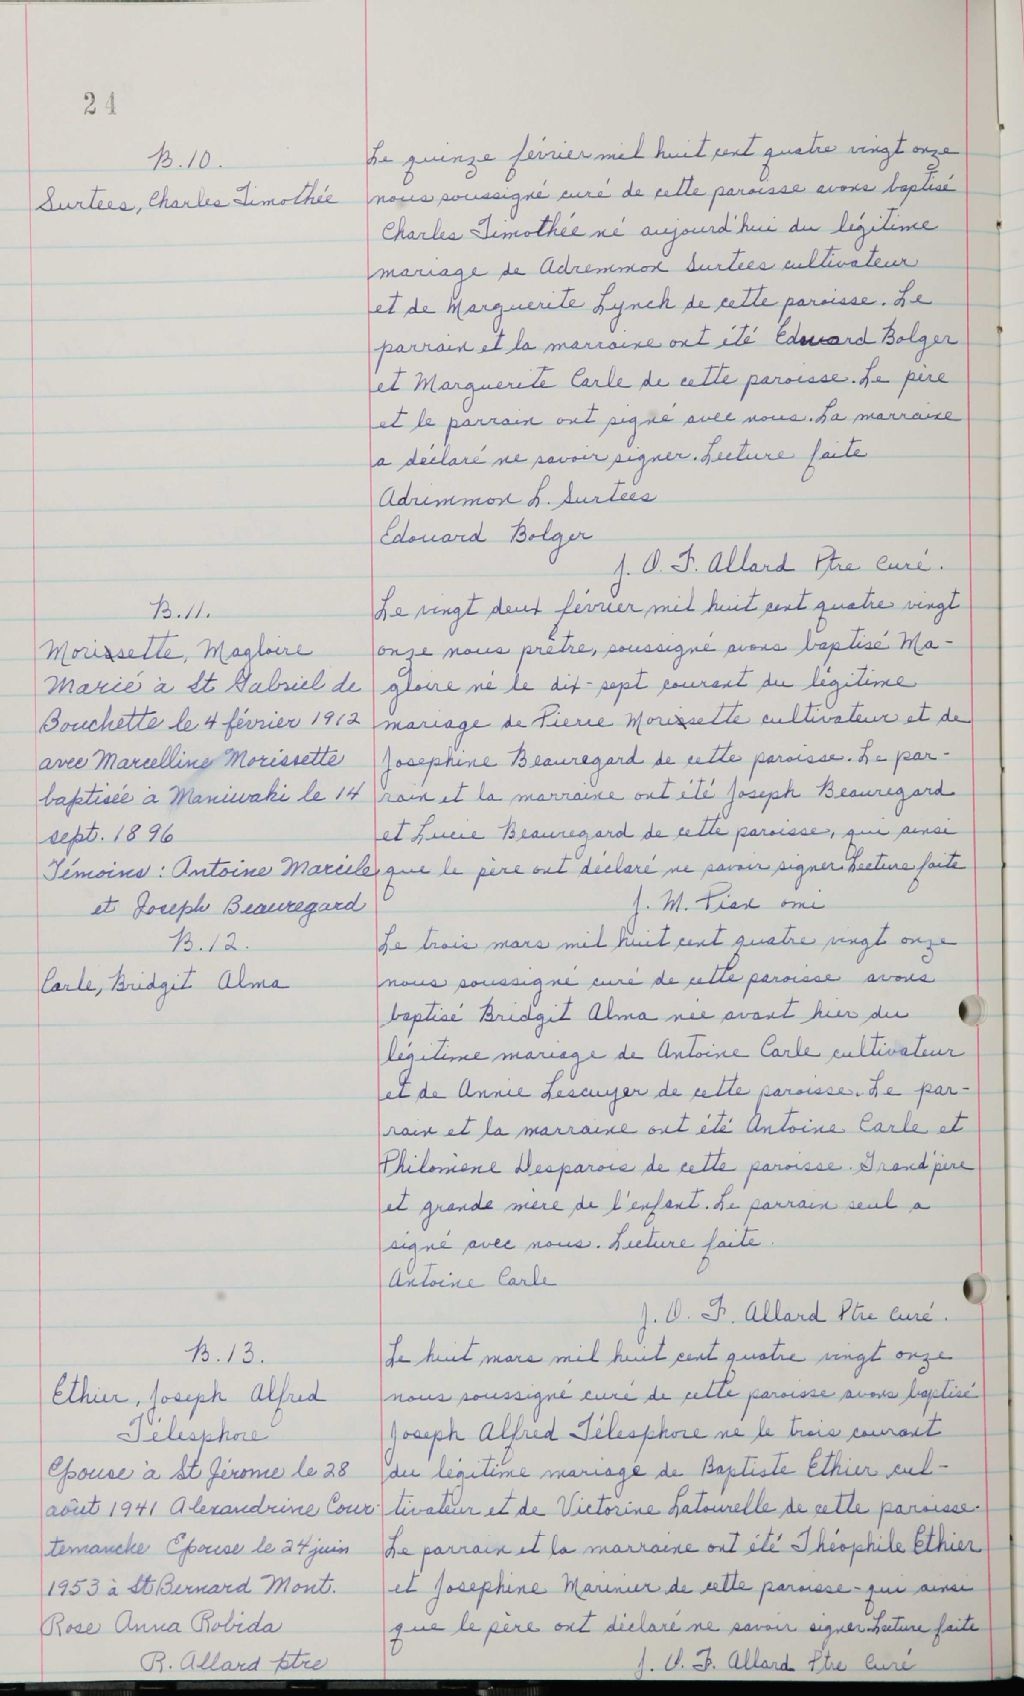 24
B.10.
Surtees, Charles Timothée
Le quinze février mil huit cent quatre vingt onze
nous soussigné curé de cette paroisse avons baptisé
Charles Timothée né aujourd'hui du légitime
mariage de Adremmon Surtees cultivateur
et de Marguerite Lynch de cette paroisse. Le
parrain et la marraine ont été Edouard Bolger
et Marguerite Carle de cette paroisse. Le père
et le parrain ont signé avec nous. La marraine
a déclaré ne savoir signer. Lecture faite
Adrimmon L. Surtees
Edouard Bolger
J. O. F. Allard Ptre Curé.
B.11.
Morissette, Magloire
Marié à St Gabriel de
Bouchette le 4 février 1912
avec Marcelline Morissette
baptisée à Maniwaki le 14
sept. 1896
Témoins : Antoine Marcile
et Joseph Beauregard
Le vingt deux février mil huit cent quatre vingt
onze nous prêtre, soussigné avons baptisé Ma-
gloire né le dix-sept courant du légitime
mariage de Pierre Morissette cultivateur et de
Josephine Beauregard de cette paroisse. Le par-
rain et la marraine ont été Joseph Beauregard
et Lucie Beauregard de cette paroisse, qui ainsi
que le père ont déclaré ne savoir signer Lecture faite
J. M. Pian omi
B.12.
Carle, Bridgit Alma
Le trois mars mil huit cent quatre vingt onze
nous soussigné curé de cette paroisse avons
baptisé Bridgit Alma née avant hier du
légitime mariage de Antoine Carle cultivateur
et de Annie Lescuyer de cette paroisse. Le par-
rain et la marraine ont été Antoine Carle et
Philomène Desparois de cette paroisse. Grand'père
et grande mère de l'enfant. Le parrain seul a
signé avec nous. Lecture faite.
Antoine Carle
J. O. F. Allard Ptre Curé.
B.13.
Ethier, Joseph Alfred
Télesphore
Epouse à St Jérome le 28
août 1941 Alexandrine Cour-
temanche Epouse le 24 juin
1953 à St Bernard Mont.
Rose Anna Robida
R. Allard ptre
Le huit mars mil huit cent quatre vingt onze
nous soussigné curé de cette paroisse avons baptisé
Joseph Alfred Télesphore né le trois courant
du légitime mariage de Baptiste Ethier cul-
tivateur et de Victorine Latourelle de cette paroisse.
Le parrain et la marraine ont été Théophile Ethier
et Josephine Marinier de cette paroisse - qui ainsi
que le père ont déclaré ne savoir signer Lecture faite
J. O. F. Allard Ptre Curé